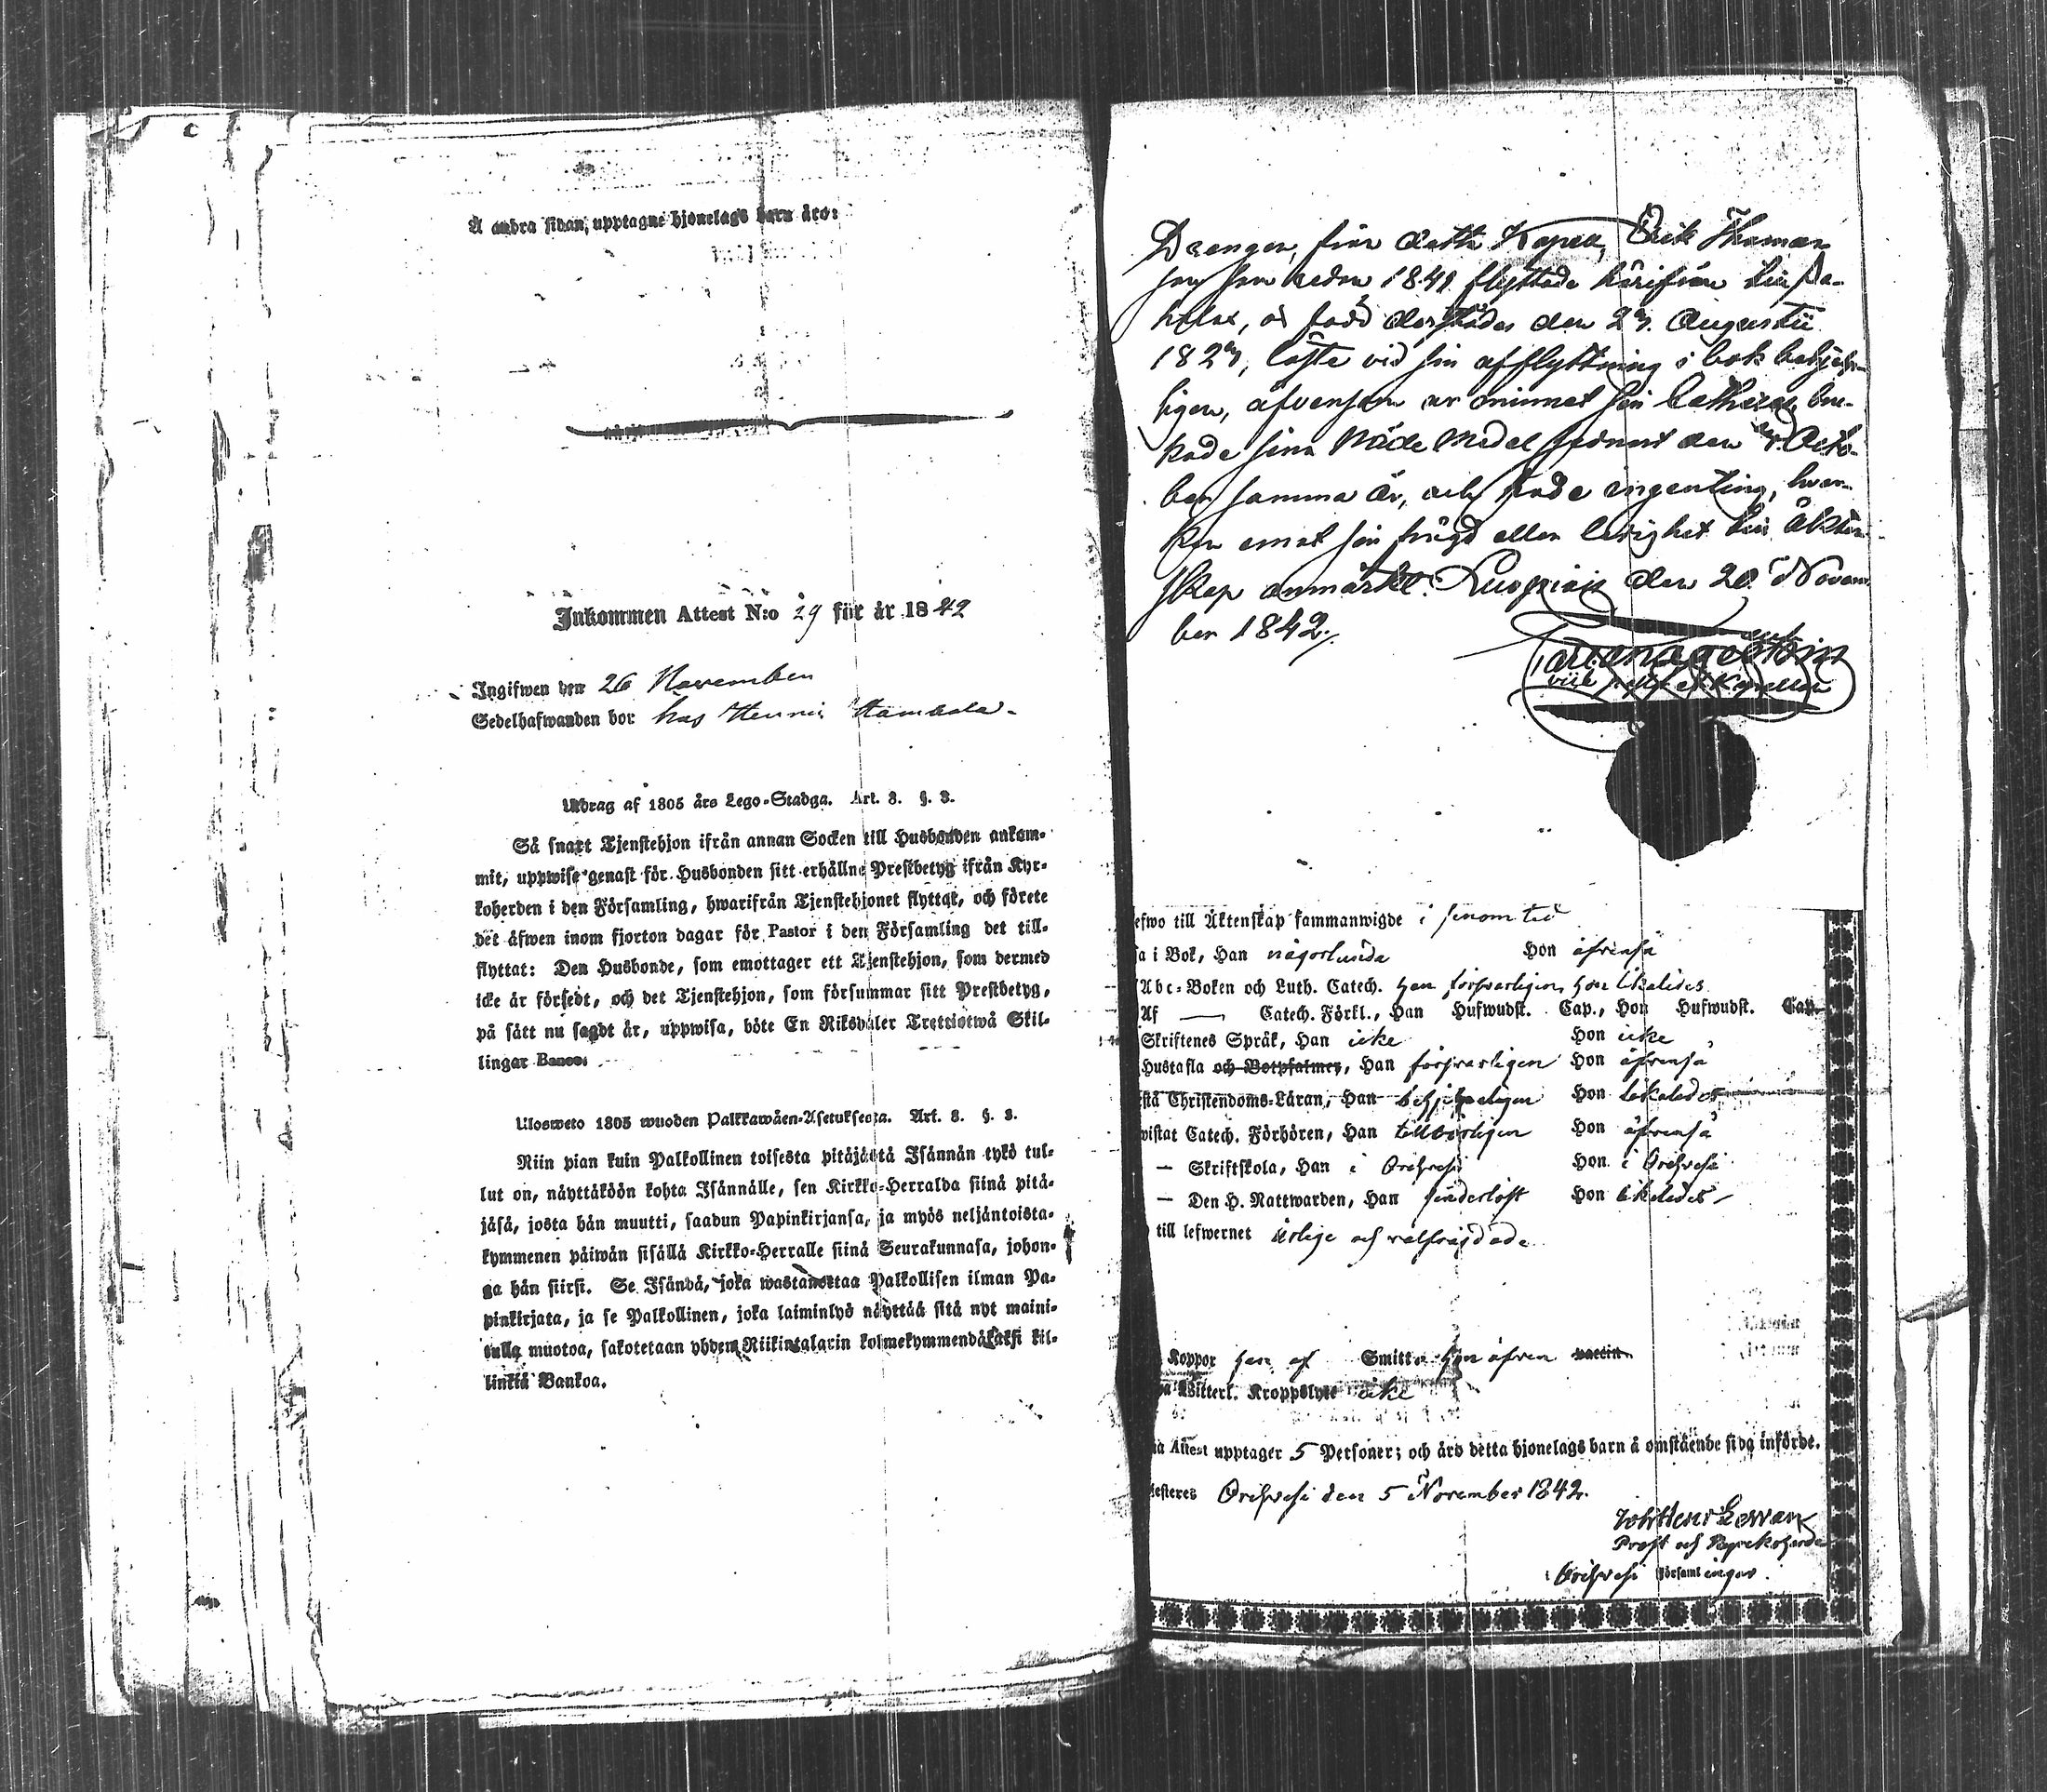 Å andra sidan, upptagne hjonelags barn äro:
Inkommen Attest N:o 29 för år 1842
Ingifwen den 26 November
Sedelhafwanden bor hos Henric
Utdrag af 1805 års Lego-Stadga. Art. 8. §. 3.
Så snart Tjenstehjon ifrån annan Socken till Husbonden ankom-
mit, uppwise genast för Husbonden sitt erhållne Prestbetyg ifrån Kyr-
koherden i den Församling, hwarifrån Tjenstehjonet flyttat, och förete
det äfwen inom fjorton dagar för Pastor i den Församling det till-
flyttat: Den Husbonde, som emottager ett Tjenstehjon, som dermed
icke är försedt, och det Tjenstehjon, som försummar sitt Prestbetyg,
på sätt nu sagdt är, uppwisa, böte En Riksdaler Trettiotwå Skil-
lingar Banco.
Ulosweto 1805 wuoden Palkkawäen-Asetuksesta. Art. 8. §. 3.
Niin pian kuin Palkollinen toisesta pitäjästä Isännän tykö tul-
lut on, näyttäköön kohta Isännälle, sen Kirkko-Herralda siinä pitä-
jäsä, josta hän muutti, saadun Papinkirjansa, ja myös neljäntoista-
kymmenen päiwän sisällä Kirkko-Herralle siinä Seurakunnasa, johon-
ga hän siirsi. Se Isändä, joka wastanottaa Palkollisen ilman Pa-
pinkirjata, ja se Palkollinen, joka laiminlyö näyttää sitä nyt maini-
tulla muotoa, sakotetaan yhdem Riikintalarin kolmekymmendäkaksi kil-
linkiä Bankoa.
Drengen, från detta Kapell, Erik Thomas
son som redan 1841 flyttade härifrån till Pa-
.. är född derstädes den 27. Augustii
1827, läste vid sin afflyttning i bok
ligen, äfvensom ur minnet sin Catheches, bru-
kade sina Nåde Medel sednast den Octo-
ber samma år, och hade ingenting, hvar-
ken emot sin frägd eller ledighet till äkten-
skap anmärkt. Luopiois den 20. Novem-
ber 1842.
efwo till Äktenskap sammanwigde i senom tid
a i Bok, Han någorlunda Hon äfvenså
Abc-Boken och Luth. Catech. Han försvarligen Hon likaledes
Af — Catech. Förkl., Han Hufwudst. Cap., Hon Hufwudst. Cap.
Skriftenes Språk, Han icke Hon icke
Hustafla och Botpsalmer, Han försvarligen Hon äfvenså
stå Christendoms-Läran, Han Hon likaledes
wistat Catech. Förhören, Han tillbörligen Hon äfvenså
— Skriftskola, Han i Orihvesi Hon i Orihvesi
— Den H. Nattwarden, Han Hon likaledes
till lefwernet ärlige och välfrägdade
Koppor Han af Smitt. Hon äfven vaccin
Witterl. Kroppslyte icke
na Attest upptager 5 Personer; och äro detta hjonelags barn å omstående sida införde.
testeres Orihvesi den 5 November 1842.
Joh Henr
Prost och Kyrkoherde
Orihvesi Församlingar.